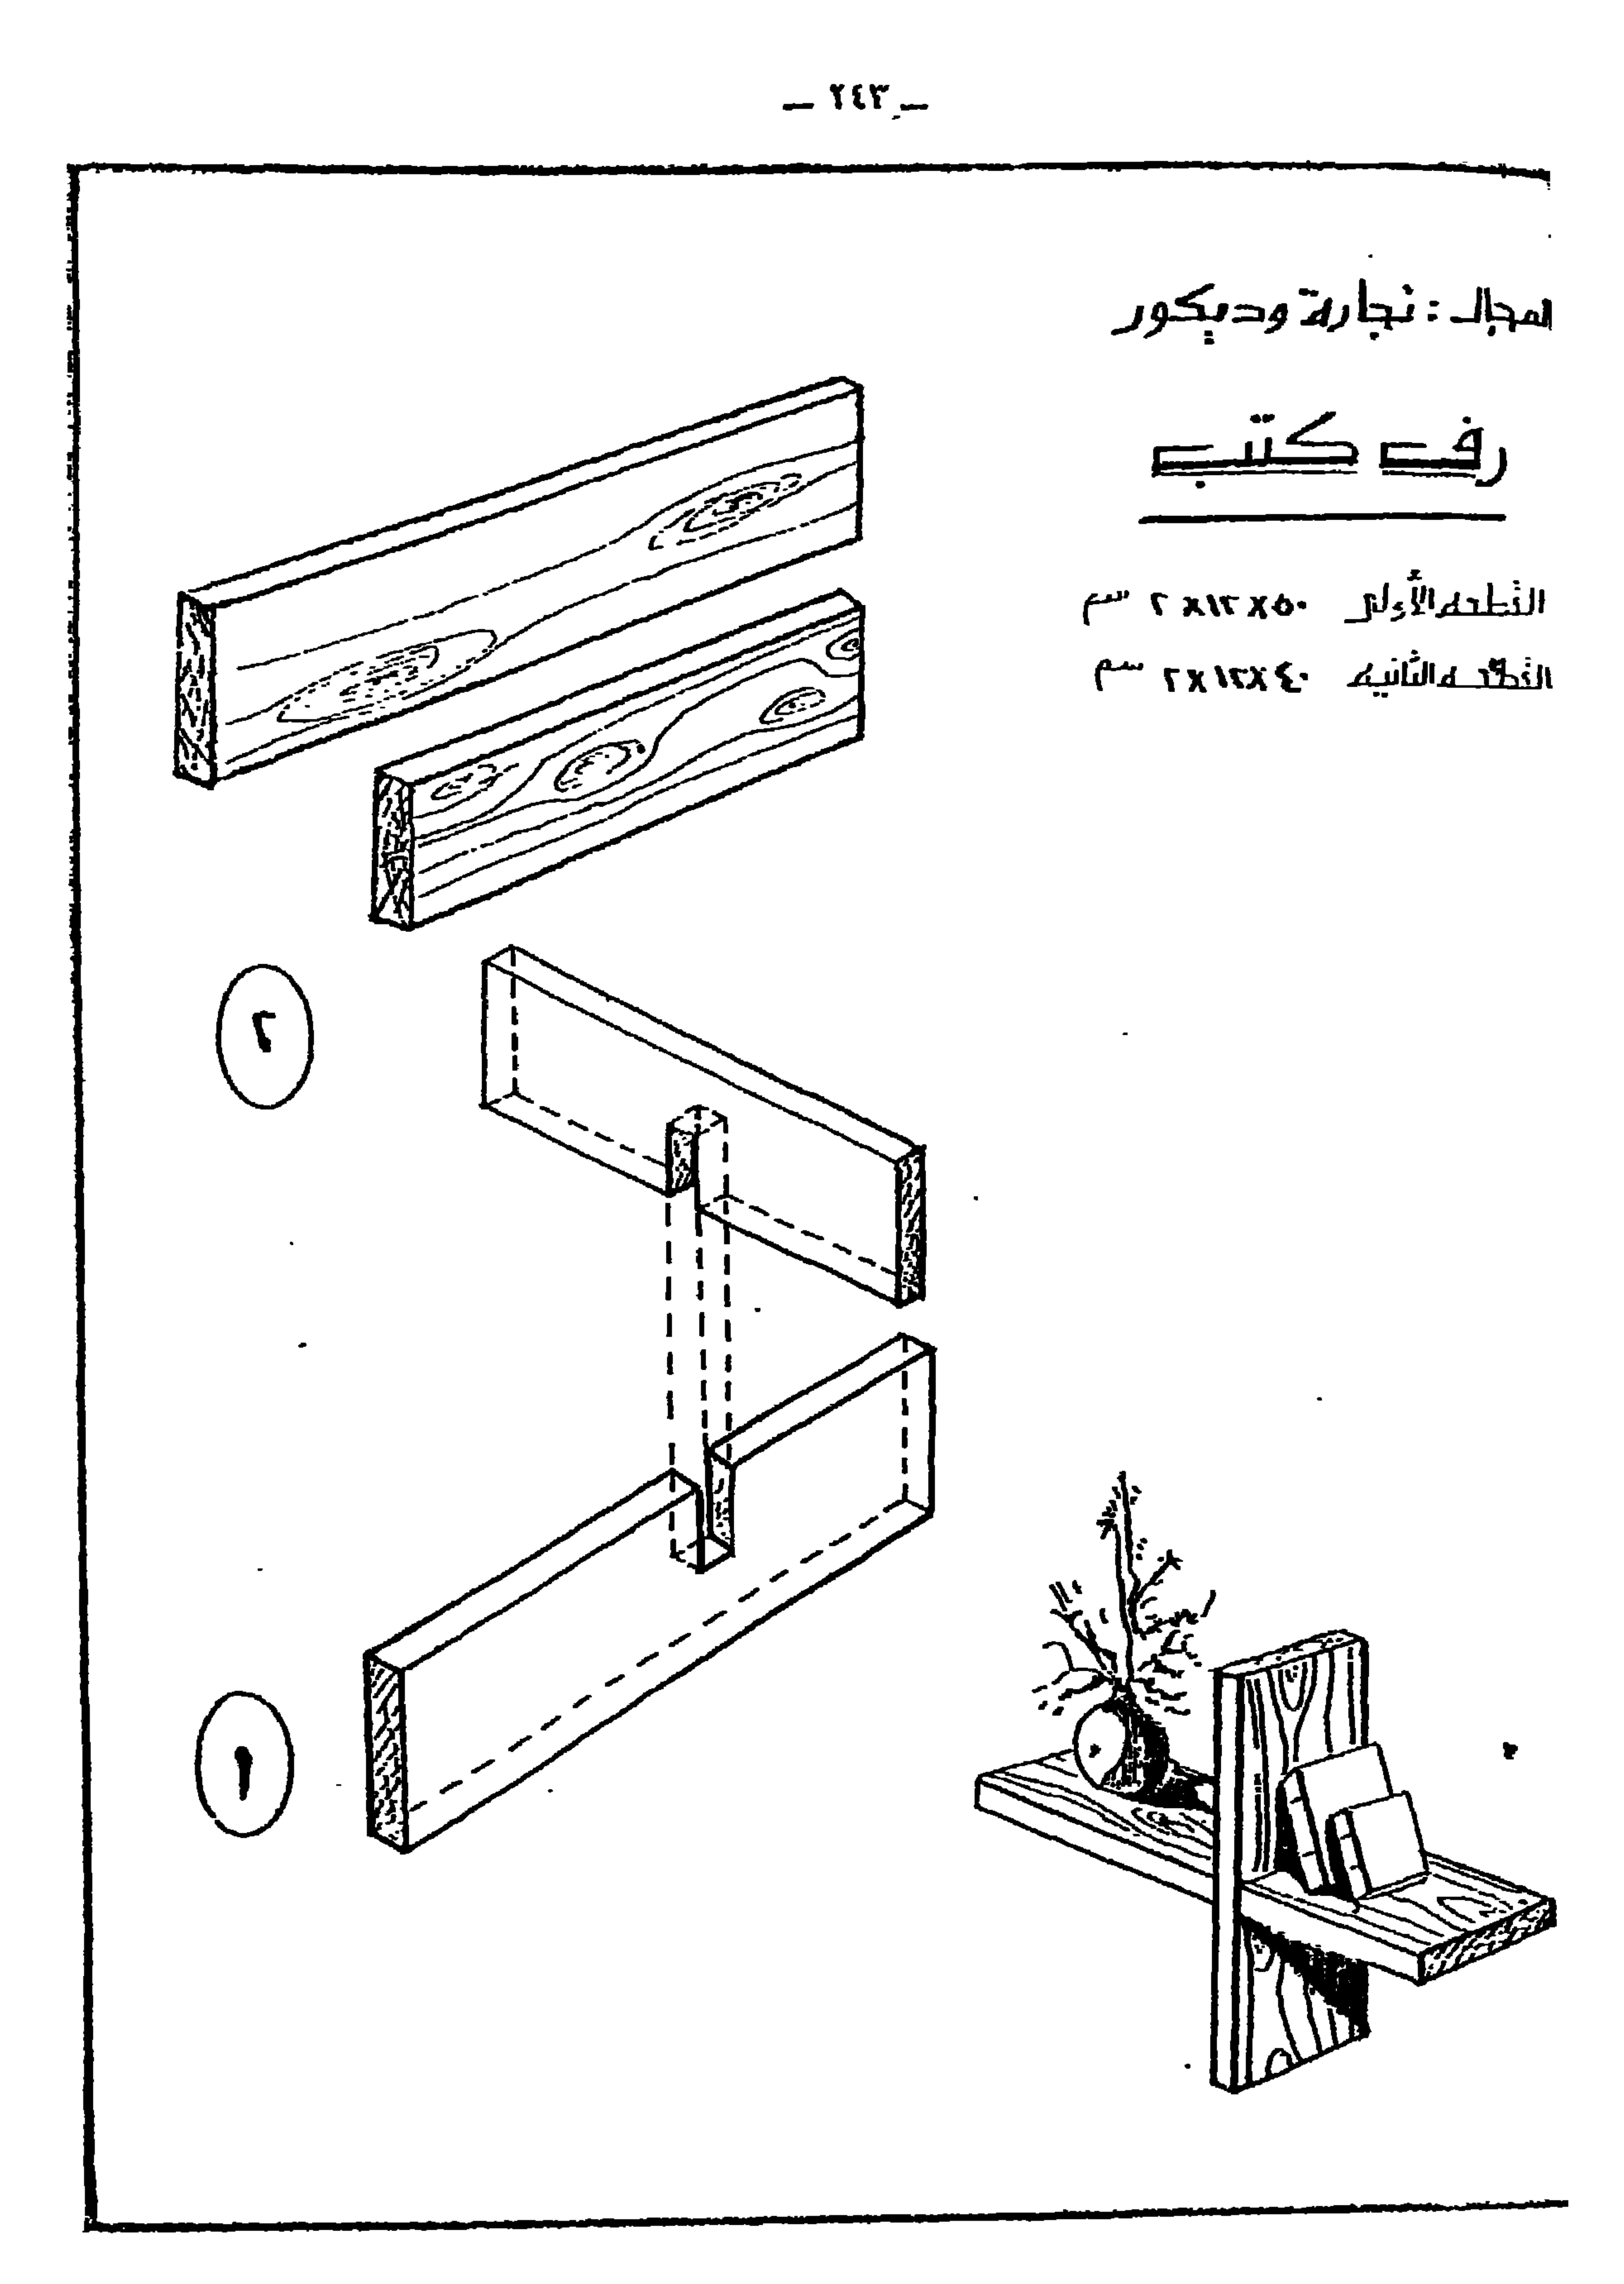 — ٢٤٣ —
المجال : نجارة وديكور
رف كتب
القطعه الأولى ٥٠ X ١٢ X ٢ سم
القطعه الثانيه ٤٠ X ١٢ X ٢ سم
٢
١